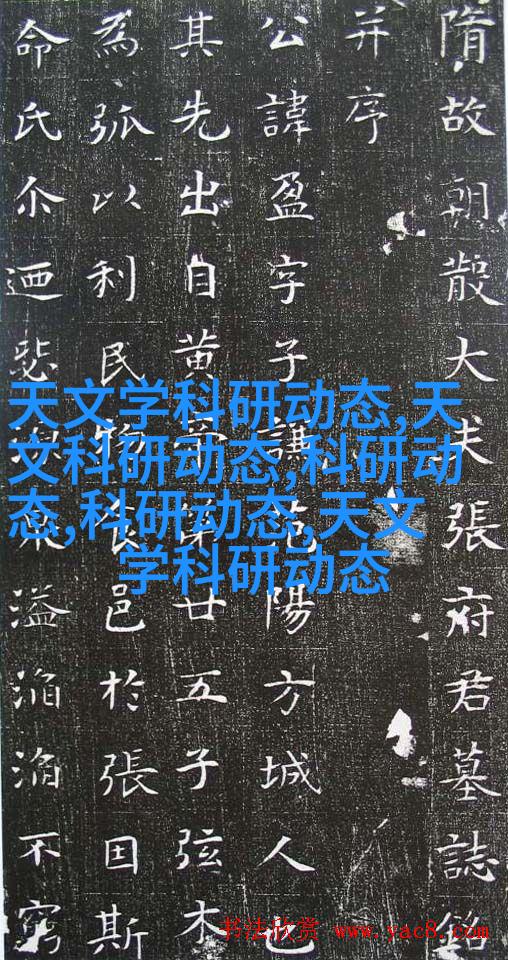 隋故朝散大夫張府君墓誌銘
并序
公諱盈字子謙范陽方城人也
其先出自黄帝第廿五子弦木
為弧以利民物食邑於張因斯
命氏尒迺源泉溢滔滔不窮
天文学科研动态,天
文科研动态,科研动
态,科研动态,天文
学科研动态
书法欣赏 www.yac8.com